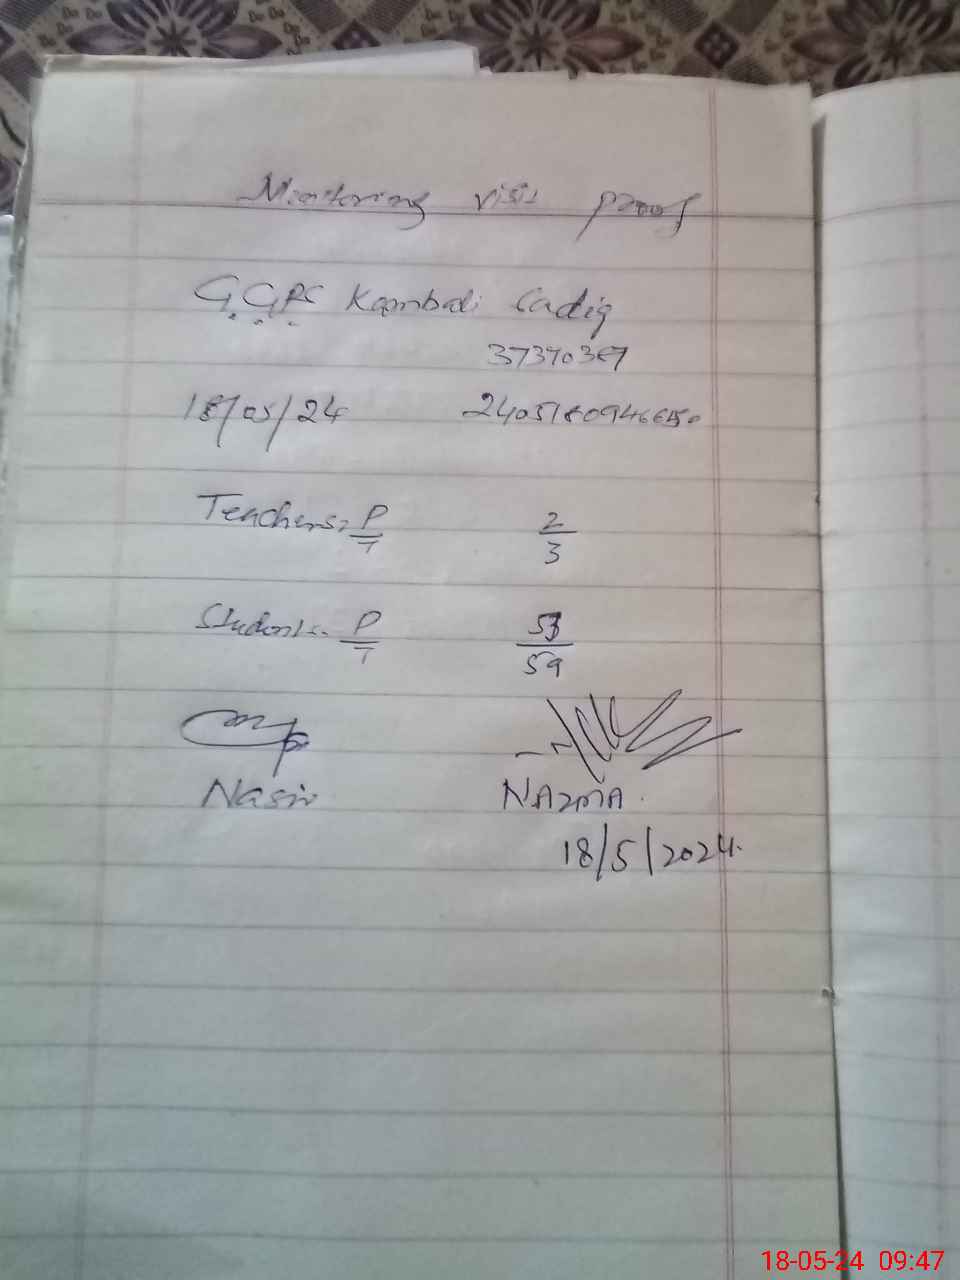 Monitoring visit proof
G.G.P.S Kambali Sadiq
37370367
18/05/24 240518094665
Teachers: P/T 2/3
Students:- P/T 53/59
Nasir NAZMA.
18/5/2024.
18-05-24 09:47